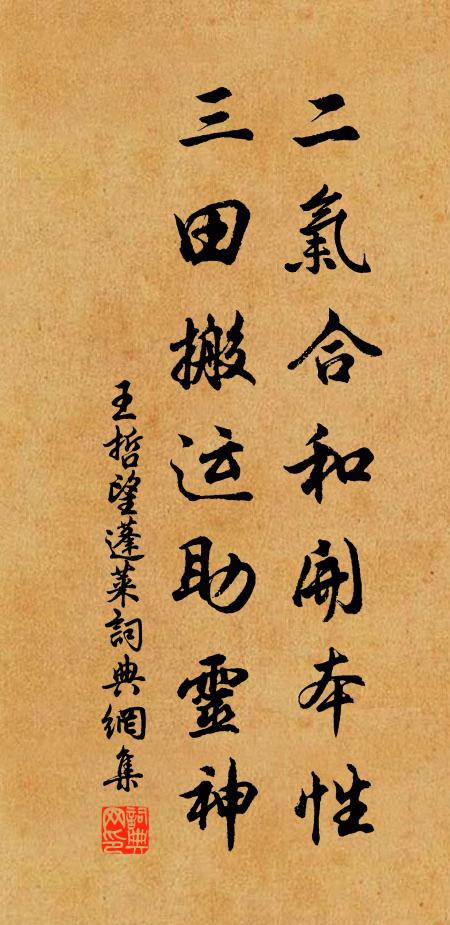 二氣合和開本性
三田搬运助靈神
王哲望蓬莱詞典網集
詞典网印